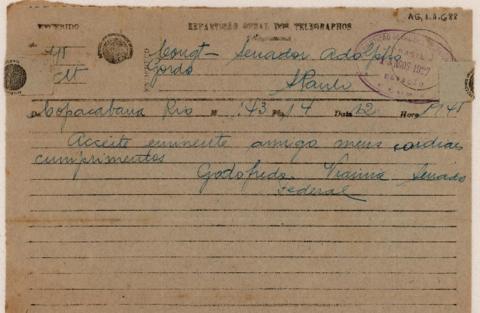 AG.1.8.688
REPARTIÇÃO GERAL DOS TELEGRAPHOS
Congt - Senador Adolpho
Gordo
SPaulo
De Copacabana Rio N 143 Pls 14 Data 12 Hora 1945
Acceite eminente amigo meus cordiaes
cumprimentos
Godofredo Vianna Senado
Federal